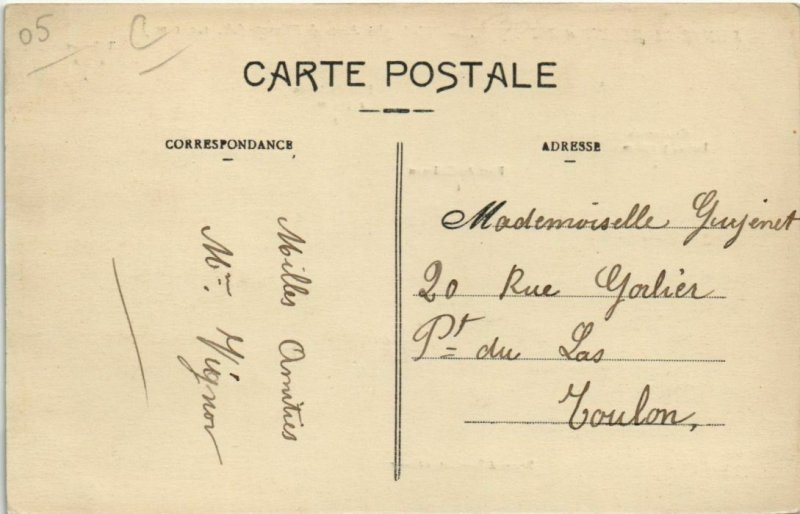 05
C
CARTE POSTALE
CORRESPONDANCE
ADRESSE
Milles Amities
Mme. Vignon
Mademoiselle Guyenet
20 Rue Gorlier
Pt du Las
Toulon,